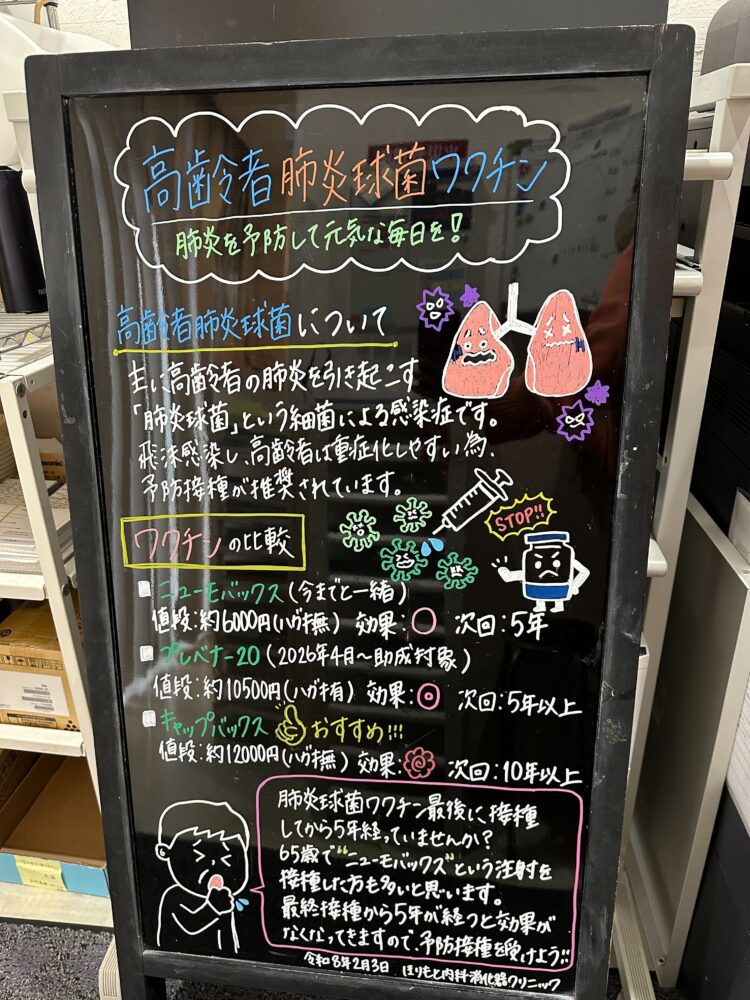 高齢者肺炎球菌ワクチン
肺炎を予防して元気な毎日を!
高齢者肺炎球菌について
主に高齢者の肺炎を引き起こす
「肺炎球菌」という細菌による感染症です。
飛沫感染し、高齢者は重症化しやすい為、
予防接種が推奨されています。
STOP!!
ワクチンの比較
ニューモバックス(今までと一緒)
値段:約6000円(ハガキ無) 効果:○ 次回:5年
プレベナー20(2026年4月〜助成対象)
値段:約10500円(ハガキ有) 効果:◎ 次回:5年以上
キャップバックス おすすめ!!!
値段:約12000円(ハガキ無) 効果: 次回:10年以上
肺炎球菌ワクチン最後に接種
してから5年経っていませんか?
65歳で"ニューモバックス"という注射を
接種した方も多いと思います。
最終接種から5年が経つと効果が
なくなってきますので、予防接種を受けよう!!
令和8年2月3日 ほりもと内科消化器クリニック